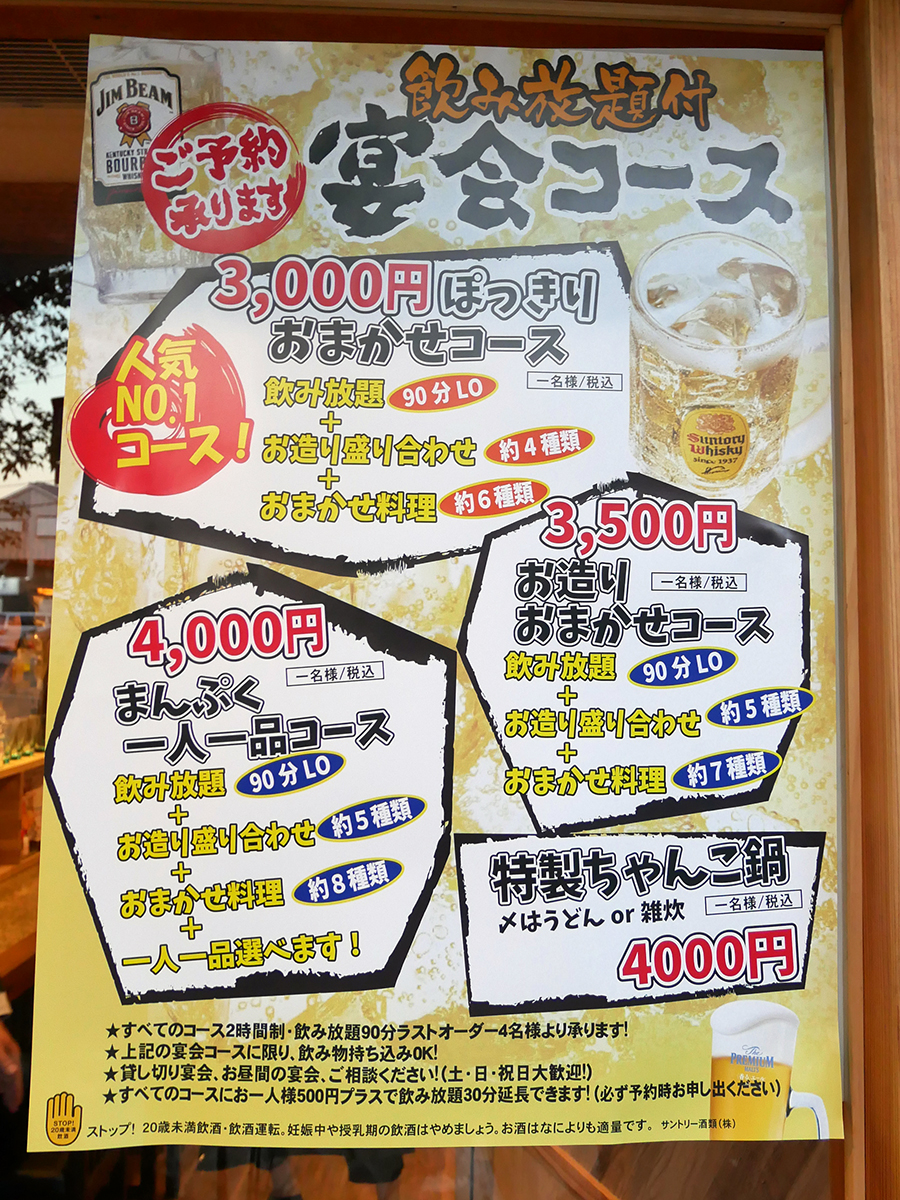 JIM BEAM
B
KENTUCKY
BOURBON
WHISKEY
ご予約
承ります
飲み放題付
宴会コース
3,000円ぽっきり
おまかせコース
一名様/税込
人気
NO.1
コース!
飲み放題 90分LO
+
お造り盛り合わせ 約4種類
+
おまかせ料理 約6種類
Suntory
Whisky
since 1937
3,500円
お造り
一名様/税込
おまかせコース
飲み放題 90分LO
+
お造り盛り合わせ 約5種類
+
おまかせ料理 約7種類
4,000円
一名様/税込
まんぷく
一人一品コース
飲み放題 90分LO
+
お造り盛り合わせ 約5種類
+
おまかせ料理 約8種類
+
一人一品選べます!
特製ちゃんこ鍋
〆はうどん or 雑炊
一名様/税込
4000円
★すべてのコース2時間制・飲み放題90分ラストオーダー4名様より承ります!
★上記の宴会コースに限り、飲み物持ち込みOK!
★貸し切り宴会、お昼間の宴会、ご相談ください!(土・日・祝日大歓迎!)
★すべてのコースにお一人様500円プラスで飲み放題30分延長できます!(必ず予約時お申し出ください)
The
PREMIUM
MALT'S
STOP!
20歳未満
飲酒
ストップ! 20歳未満飲酒・飲酒運転。妊娠中や授乳期の飲酒はやめましょう。お酒はなによりも適量です。 サントリー酒類(株)